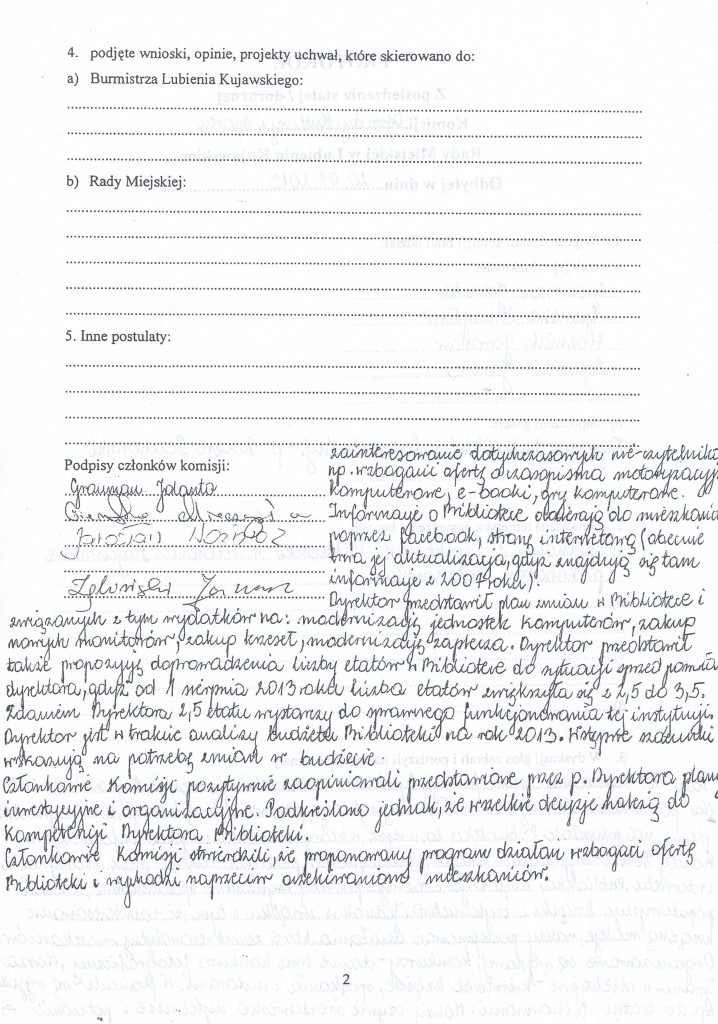 4. podjęte wnioski, opinie, projekty uchwał, które skierowano do:
a) Burmistrza Lubienia Kujawskiego:
b) Rady Miejskiej:
5. Inne postulaty:
Podpisy członków komisji:
zainteresowanie dotychczasowych nie-czytelników
np. wzbogacić ofertę o czasopisma motoryzacyj
komputerowe, e-booki, gry komputerowe.
Informacje o Bibliotece docierają do mieszkańc
poprzez facebook, stronę internetową (obecnie
trwa jej aktualizacja, gdyż znajdują się tam
informacje z 2007 roku).
Dyrektor przedstawił plan zmian w Bibliotece i
związanych z tym wydatków na: modernizację jednostek komputerów, zakup
nowych monitorów, zakup krzeseł, modernizację zaplecza. Dyrektor przedstawił
także propozycję doprowadzenia liczby etatów w Bibliotece do sytuacji sprzed
dyrektora, gdyż od 1 sierpnia 2013 roku liczba etatów zwiększyła się z 2,5 do 3,5.
Zdaniem Dyrektora 2,5 etatu wystarczy do sprawnego funkcjonowania tej instytucji.
Dyrektor jest w trakcie analizy budżetu Biblioteki na rok 2013. Wstępne szacunki
wskazują na potrzebę zmian w budżecie.
Członkowie Komisji pozytywnie zaopiniowali przedstawione przez p. Dyrektora plany
inwestycyjne i organizacyjne. Podkreślono jednak, że wszelkie decyzje należą do
kompetencji Dyrektora Biblioteki.
Członkowie Komisji stwierdzili, że proponowany program działań wzbogaci ofertę
Biblioteki i wychodzi naprzeciw oczekiwaniom mieszkańców.
2